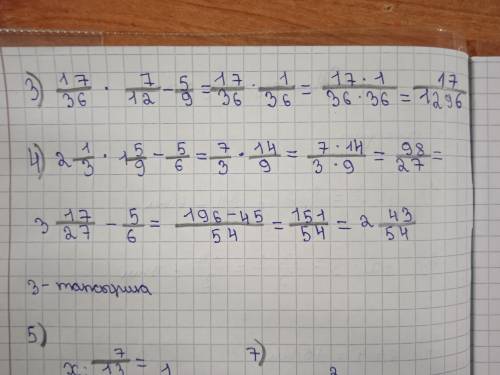 3) 17/36 · 7/12 - 5/9 = 17/36 · 1/36 = 17·1/36·36 = 17/1296
4) 2 1/3 · 1 5/9 - 5/6 = 7/3 · 14/9 = 7·14/3·9 = 98/27 =
3 17/27 - 5/6 = 196-45/54 = 151/54 = 2 43/54
3-тапсырма
5) 7)
x: 7/13 = 1